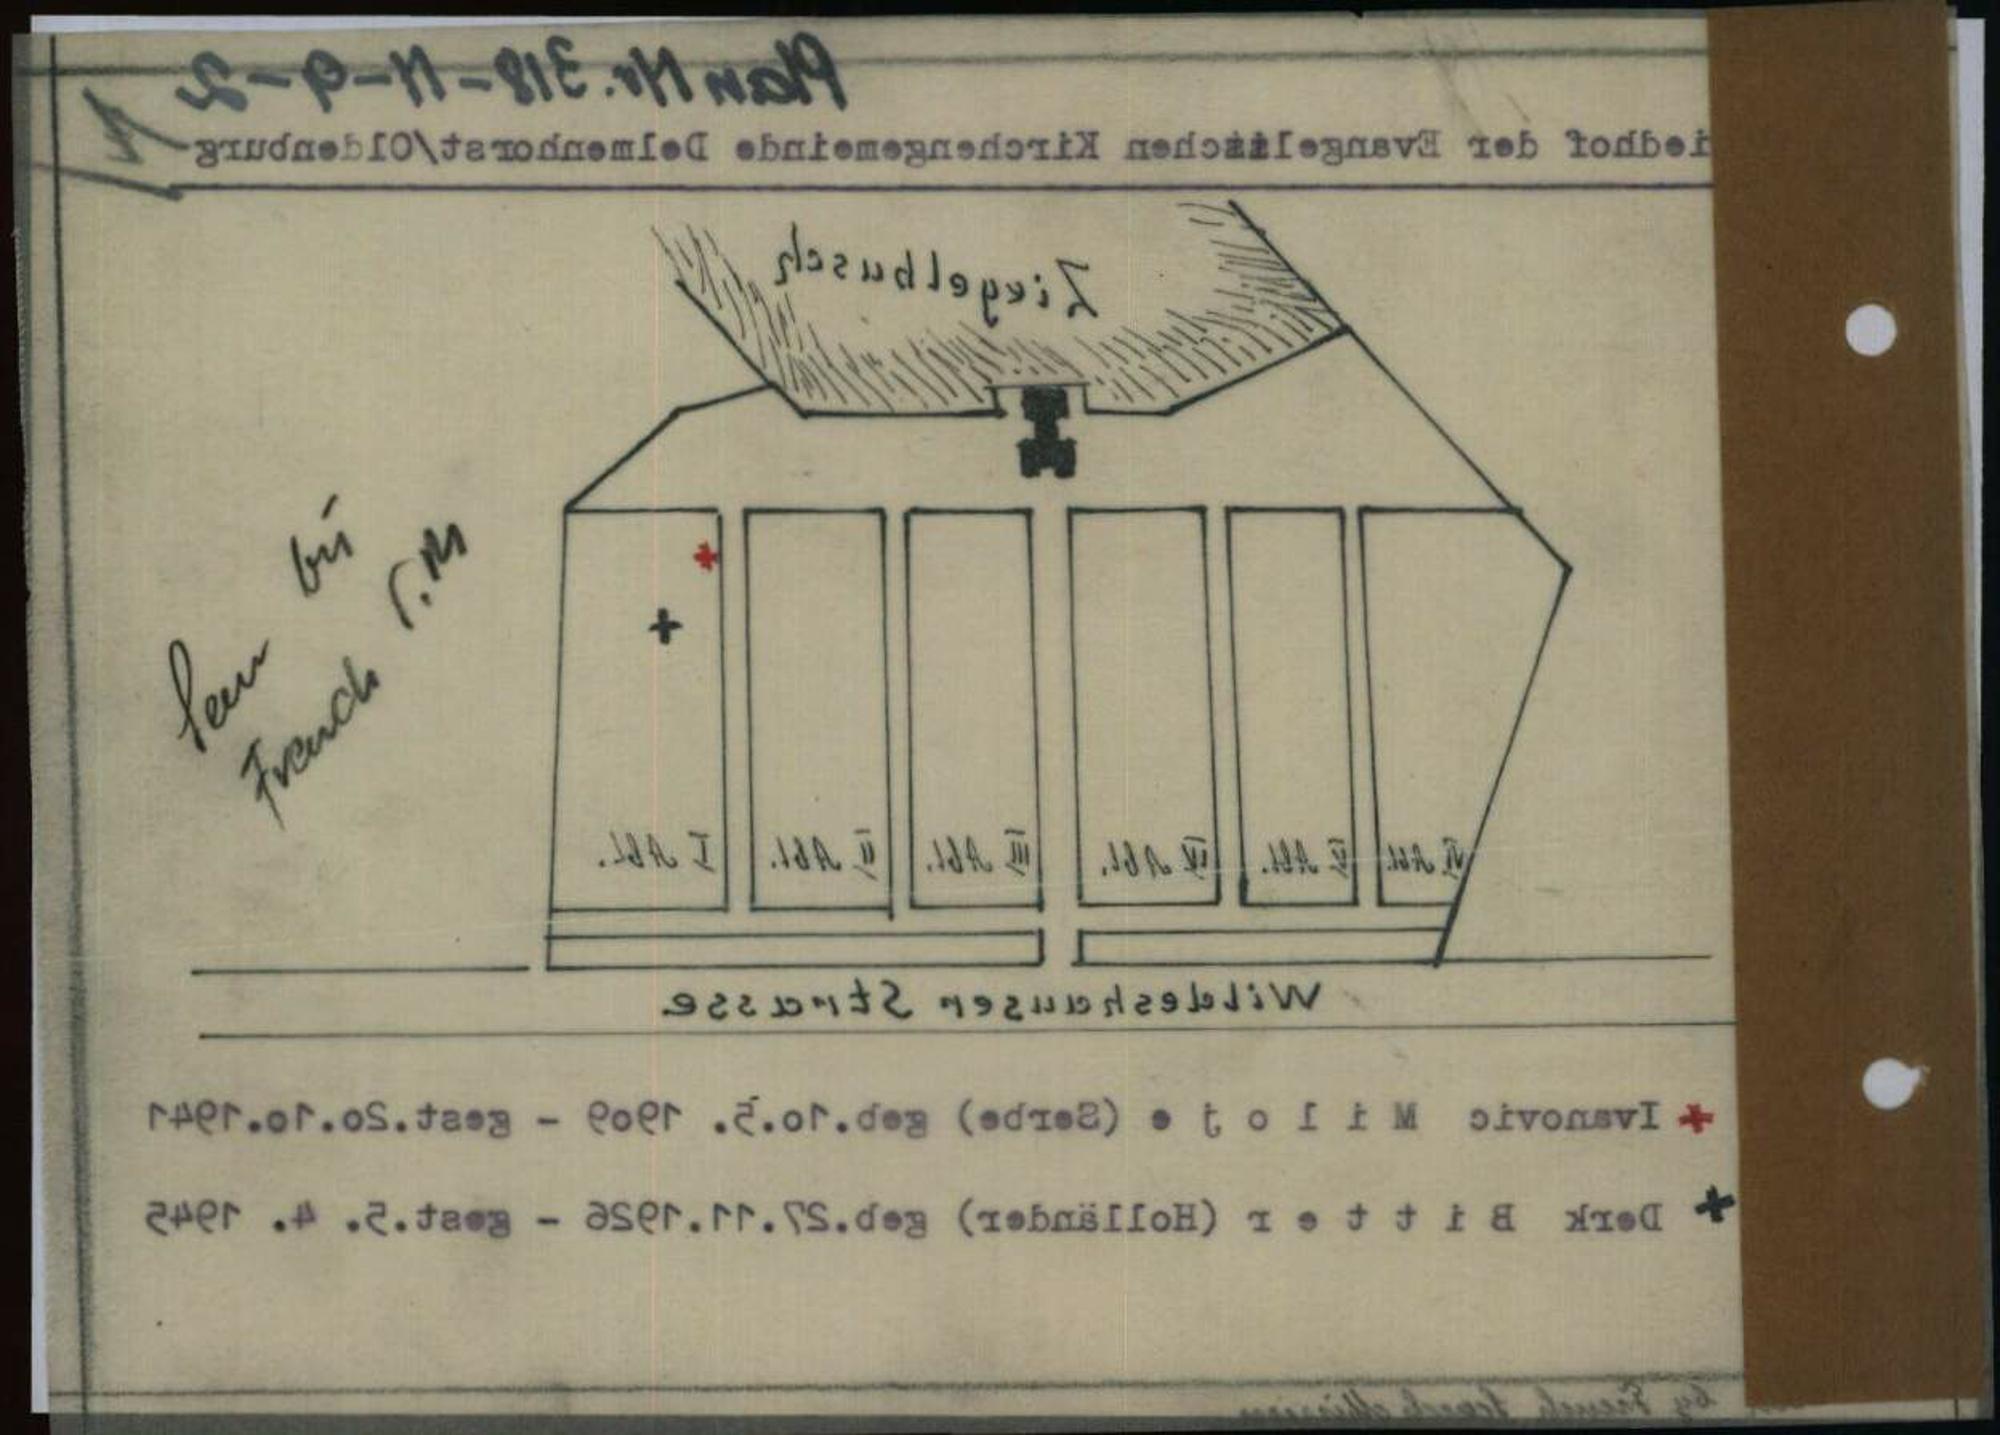 Plan Nr. 318-N-9-2
iedhof der Evangelischen Kirchengemeinde Delmenhorst/Oldenburg
N
Ziegelbusch
bü
French T.M
I Abt.
II Abt.
III Abt.
IV Abt.
V Abt.
VI Abt.
Wildeshauser Strasse
+ Ivanovic M i l o j e (Serbe) geb.1o.5. 19o9 - gest.2o.1o.1941
+ Derk B i t t e r (Holländer) geb.27.11.1926 - gest.5. 4. 1945
by French Search Mission